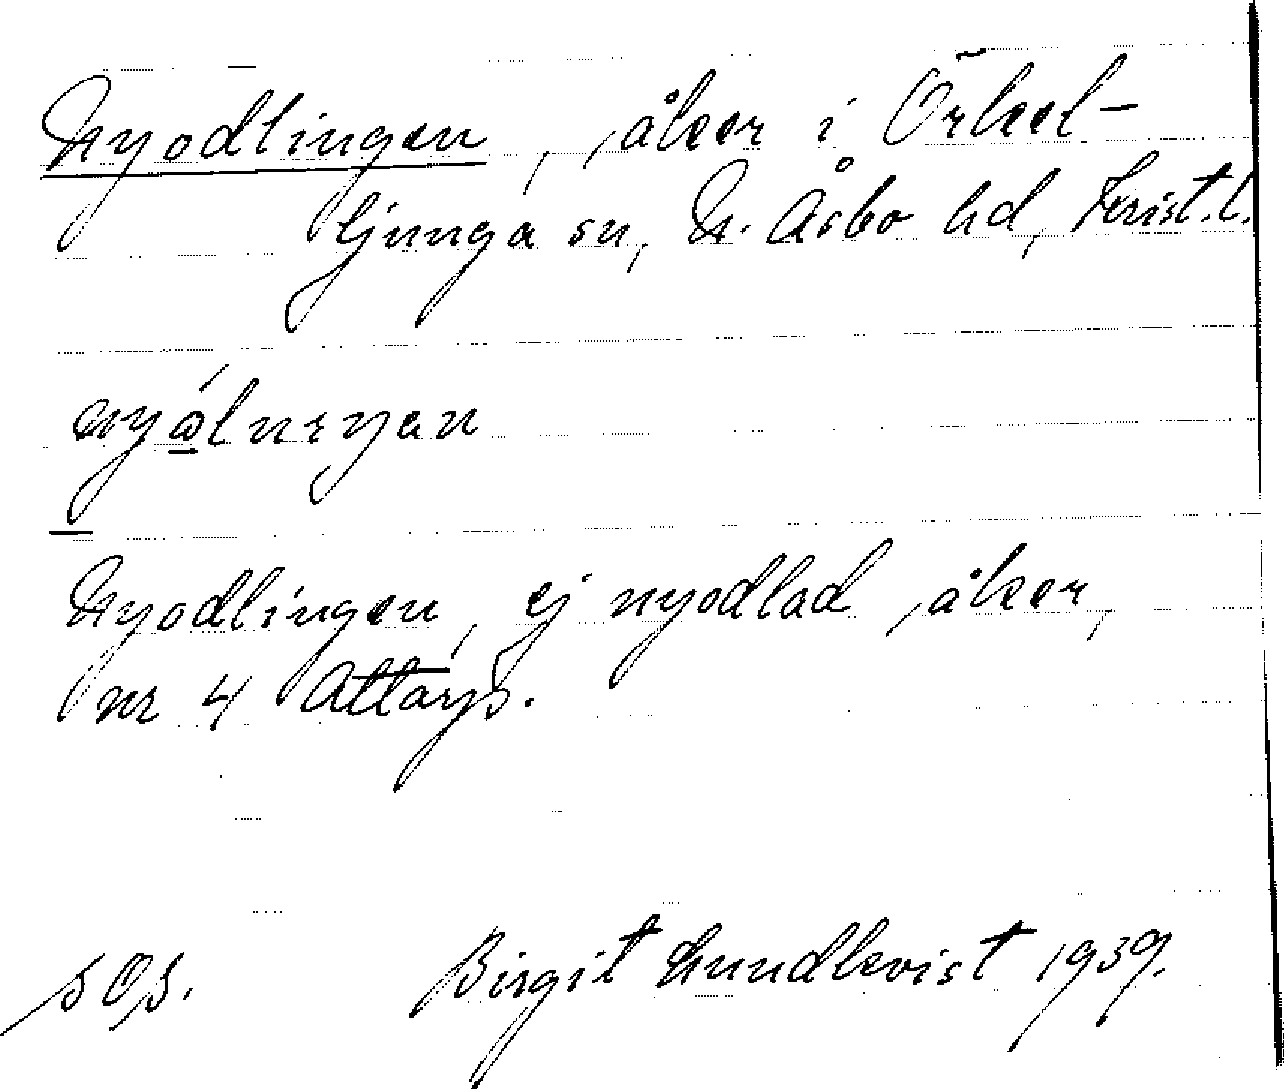 Nyodlingen, åker i Örkel-
ljunga sn, N. Åsbo hd, Krist. l.
Nyodlingen, ej nyodlad åker,
nr 4
SOS. Birgit Lundkvist 1939.